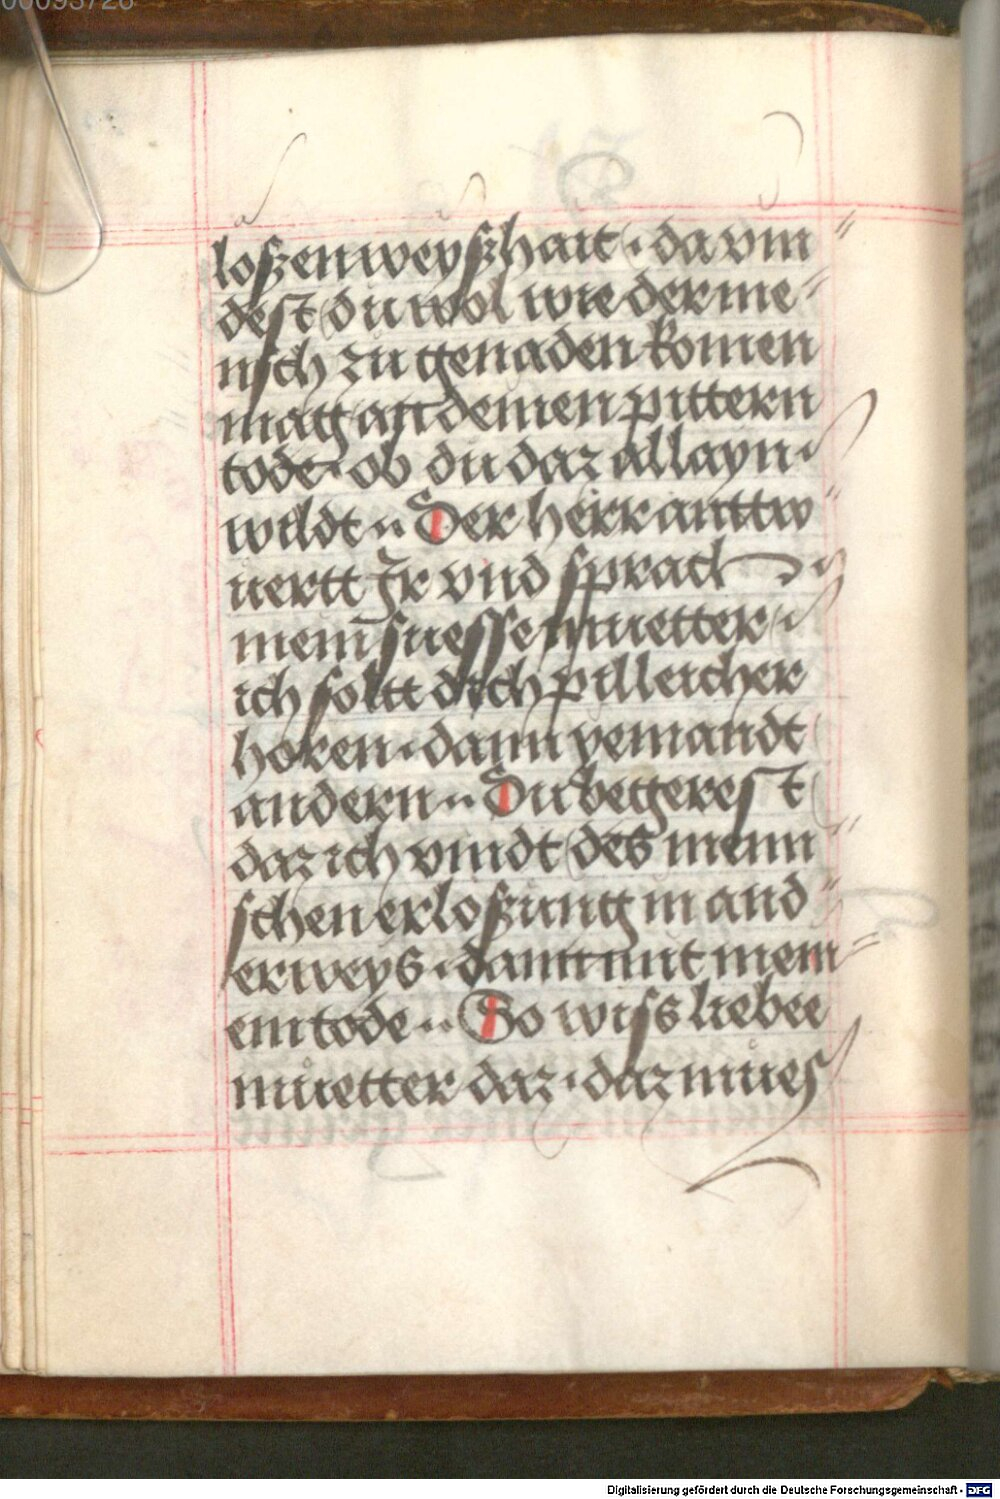 00093726
loszen weyszhait · da vin
dest du wol wie der me-
nsch zu genaden komen
mag an deinen pittern
tode · ob du daz allayn
wildt ·· Der herr anttw
uertt Ir vnd sprach
mein suesse muetter ·
ich soltt dich pilleicher
horen · dann yemandt
andern ·· Du begerest
daz ich vindt des menn
schen erloszung in and
er weys · dann mit mein-
em tode ·· So wiss liebee
muetter daz · daz mues
Digitalisierung gefördert durch die Deutsche Forschungsgemeinschaft - DFG